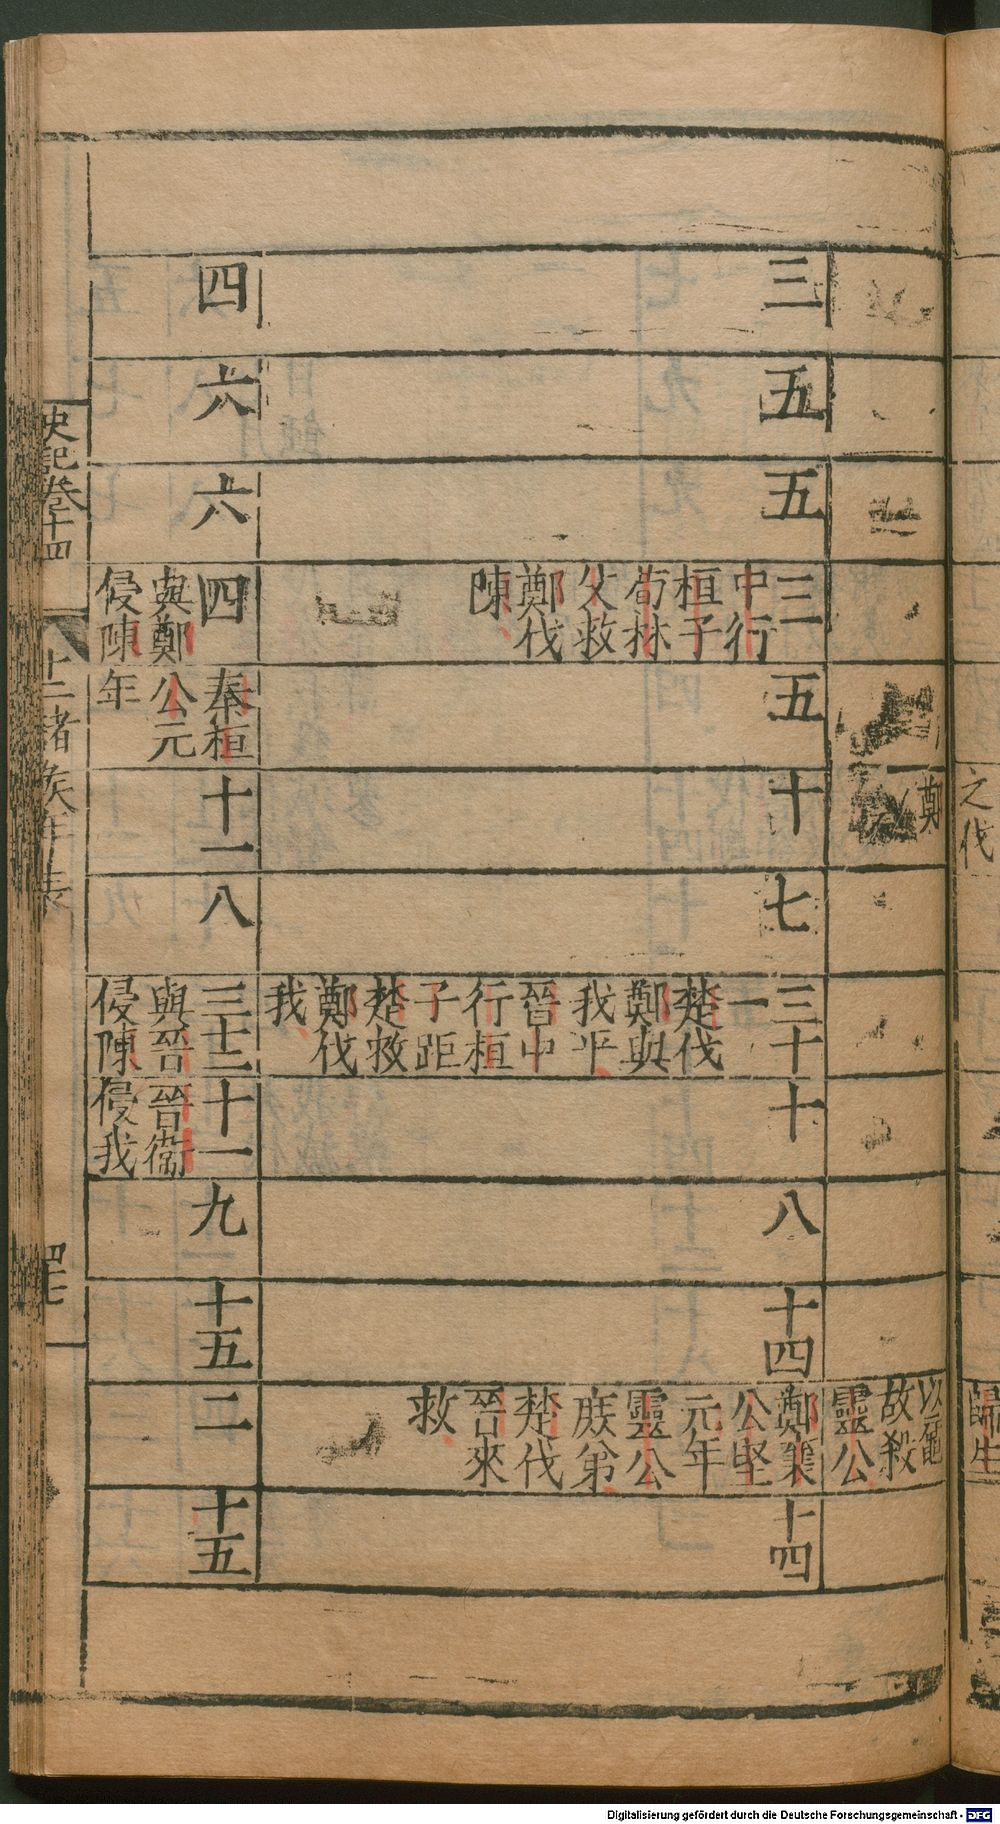 之伐
歸生
鄭
以黿
故殺
靈公
三
五
五
三
中行
桓子
荀林
父救
鄭伐
陳
五
十
七
三十
一
楚伐
鄭與
我平
晉中
行桓
子距
楚救
鄭伐
我
十
八
十四
鄭襄
公堅
元年
靈公
庶弟
楚伐
晉來
救
十四
四
六
六
四
與鄭
侵陳
秦桓
公元
年
十一
八
三十二
與晉
侵陳
十一
晉衛
侵我
九
十五
二
十五
史記卷十四
十二諸侯年表
Digitalisierung gefördert durch die Deutsche Forschungsgemeinschaft - DFG